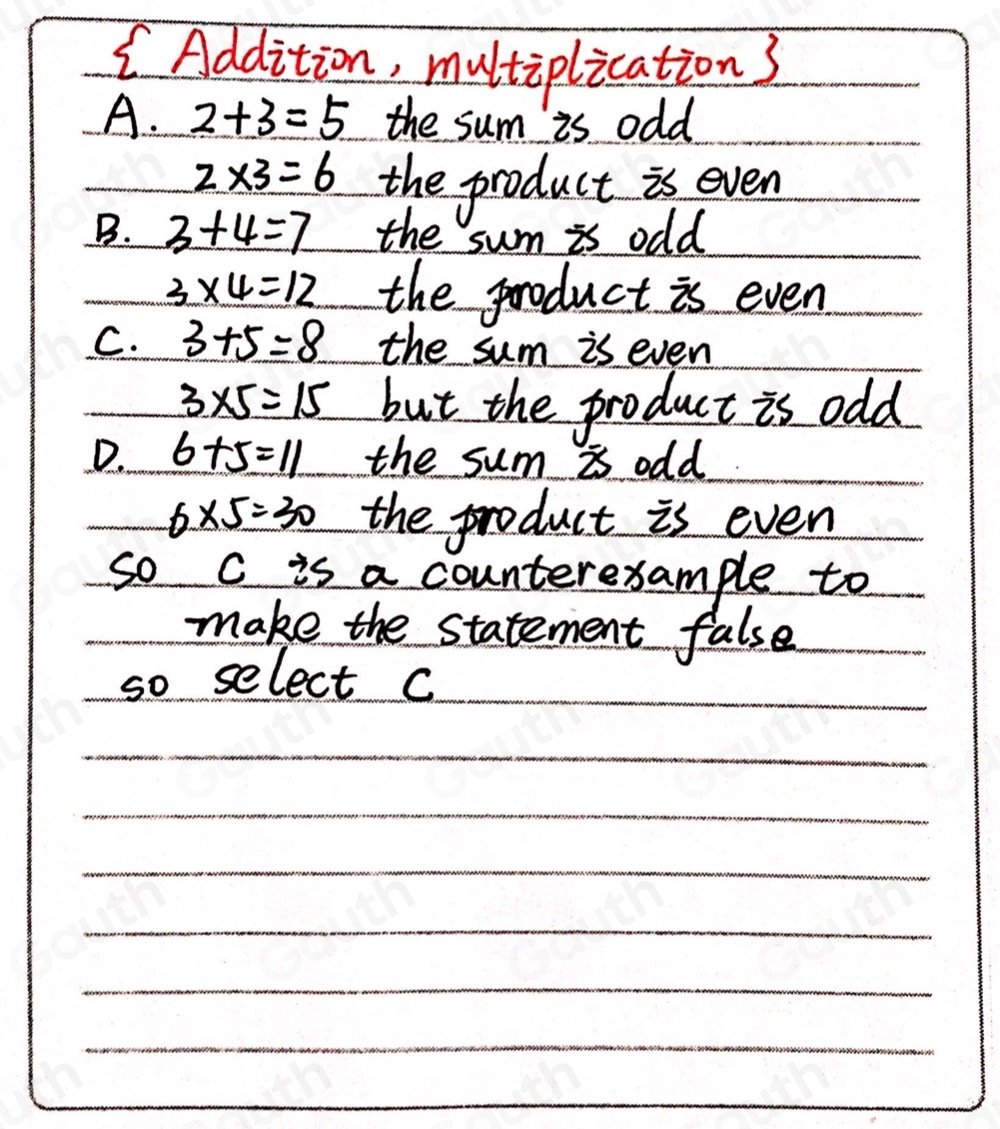 { Addition, multiplication }
A. 2+3=5 the sum is odd
2×3=6 the product is even
B. 3+4=7 the sum is odd
3×4=12 the product is even
C. 3+5=8 the sum is even
3×5=15 but the product is odd
D. 6+5=11 the sum is odd
6×5=30 the product is even
so C is a counterexample to
make the statement false
so select C